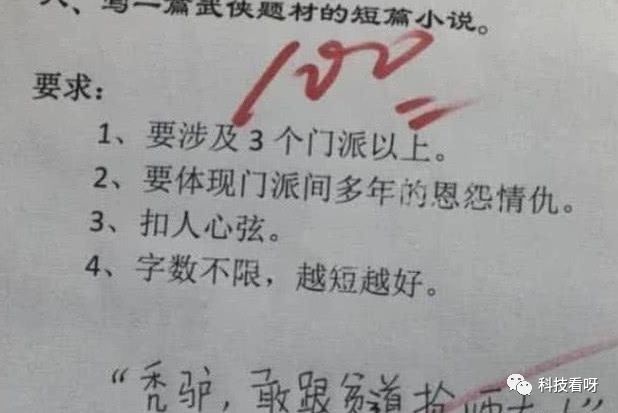 、写一篇武侠题材的短篇小说。
100
要求：
1、要涉及 3 个门派以上。
2、要体现门派间多年的恩怨情仇。
3、扣人心弦。
4、字数不限，越短越好。
“秃驴，敢跟贫道抢师太
科技看呀